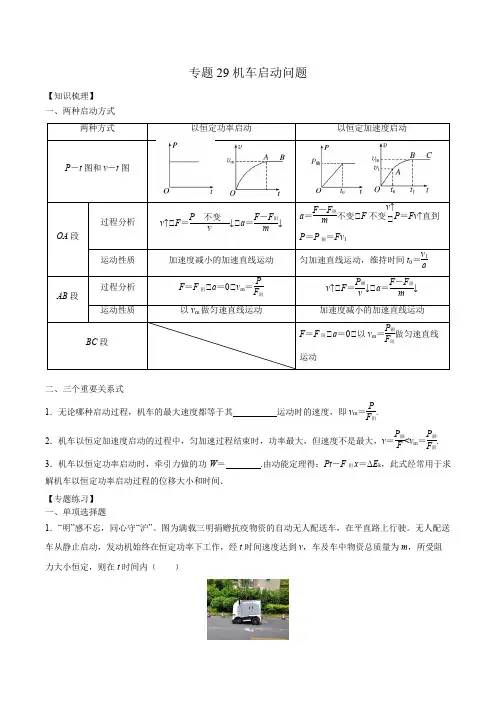 专题 29 机车启动问题
【知识梳理】
一、两种启动方式
两种方式 以恒定功率启动 以恒定加速度启动
P－t 图和 v－t 图
P O t
v vm A B O t
P P额 O t0 t
v vm v1 A B C O t0 t1 t
OA 段
过程分析
v↑□F＝P 不变/v↓□a＝F－F阻/m↓
a＝F－F阻/m不变□F 不变 v↑□P＝Fv↑直到
P＝P额＝Fv1
运动性质 加速度减小的加速直线运动 匀加速直线运动，维持时间 t0＝v1/a
AB 段
过程分析 F＝F阻□a＝0□vm＝P/F阻 v↑□F＝P额/v↓□a＝F－F阻/m↓
运动性质 以 vm 做匀速直线运动 加速度减小的加速直线运动
BC 段
F＝F阻□a＝0□以 vm＝P额/F阻做匀速直线
运动
二、三个重要关系式
1．无论哪种启动过程，机车的最大速度都等于其________运动时的速度，即 vm＝P/F阻.
2．机车以恒定加速度启动的过程中，匀加速过程结束时，功率最大，但速度不是最大，v＝P额/F<vm＝P额/F阻.
3．机车以恒定功率启动时，牵引力做的功 W＝______.由动能定理得：Pt－F阻x＝ΔEk，此式经常用于求
解机车以恒定功率启动过程的位移大小和时间．
【专题练习】
一、单项选择题
1．“明”感不忘，同心守“沪”。图为满载三明捐赠抗疫物资的自动无人配送车，在平直路上行驶。无人配送
车从静止启动，发动机始终在恒定功率下工作，经 t 时间速度达到 v，车及车中物资总质量为 m，所受阻
力大小恒定，则在 t 时间内（　　）